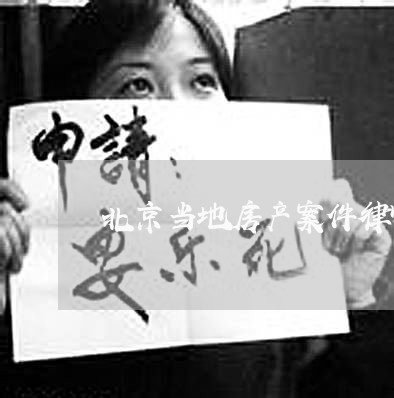 申請：
北京当地房产案件律
安乐死